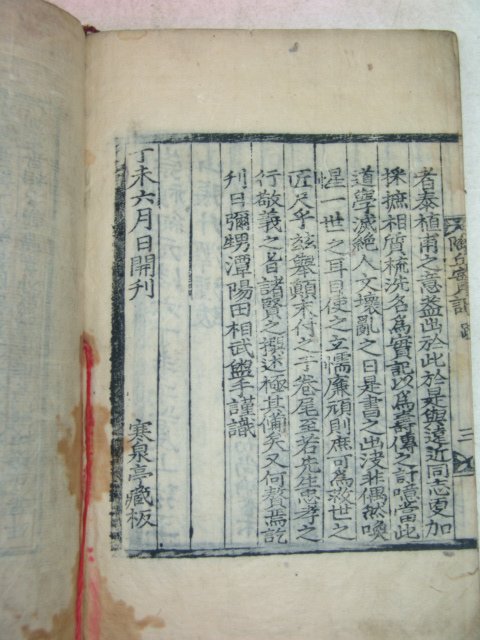 者泰植甫之意蓋出於此於是與遠近同志更加
採摭相質梳洗各爲實記以爲壽傳之計噫當此
道學滅絕人文壞亂之日是書之出決非偶然喚
惺一世之耳目使之立懦廉頑則庶可爲救世之
匠尺乎玆擧顚末付之于卷尾至若先生忠孝之
行敬義之旨諸賢之撰述極其備矣又何贅焉訖
刊日彌甥潭陽田相武盥手謹識
丁未六月日開刊
寒泉亭藏板
實記 跋
三